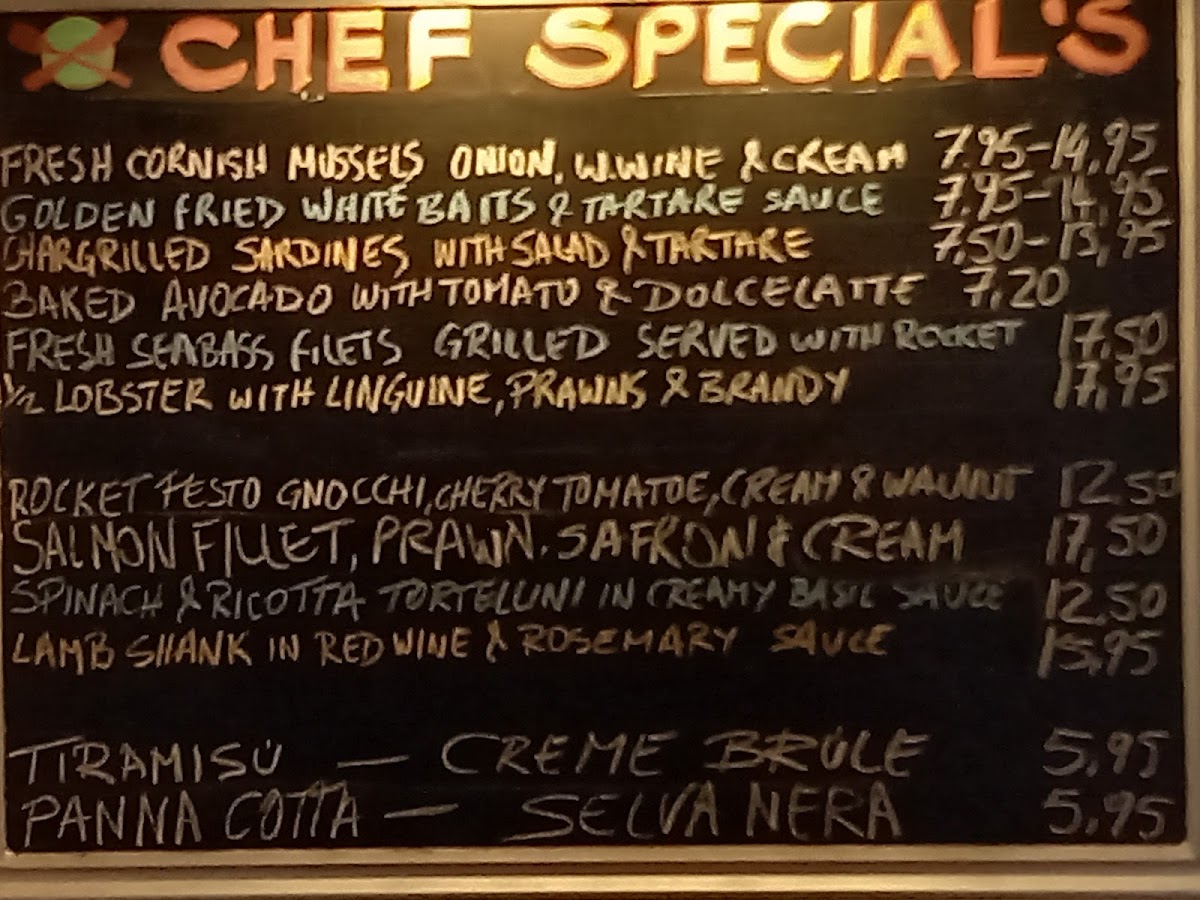 CHEF SPECIAL'S
FRESH CORNISH MUSSELS ONION, W.WINE & CREAM 7.95-14,95
GOLDEN FRIED WHITE BAITS & TARTARE SAUCE 7.95-14,95
CHARGRILLED SARDINES WITH SALAD & TARTARE 7,50-13,95
BAKED AVOCADO WITH TOMATO & DOLCELATTE 7,20
FRESH SEABASS FILETS GRILLED SERVED WITH ROCKET 17,50
1/2 LOBSTER WITH LINGUINE, PRAWNS & BRANDY 17,95
ROCKET PESTO GNOCCHI, CHERRY TOMATOE, CREAM & WALNUT 12.50
SALMON FILLET, PRAWN. SAFRON & CREAM 17,50
SPINACH & RICOTTA TORTELLINI IN CREAMY BASIL SAUCE 12,50
LAMB SHANK IN RED WINE & ROSEMARY SAUCE 15,95
TIRAMISÚ — CREME BRÚLE 5,95
PANNA COTTA — SELVA NERA 5,95